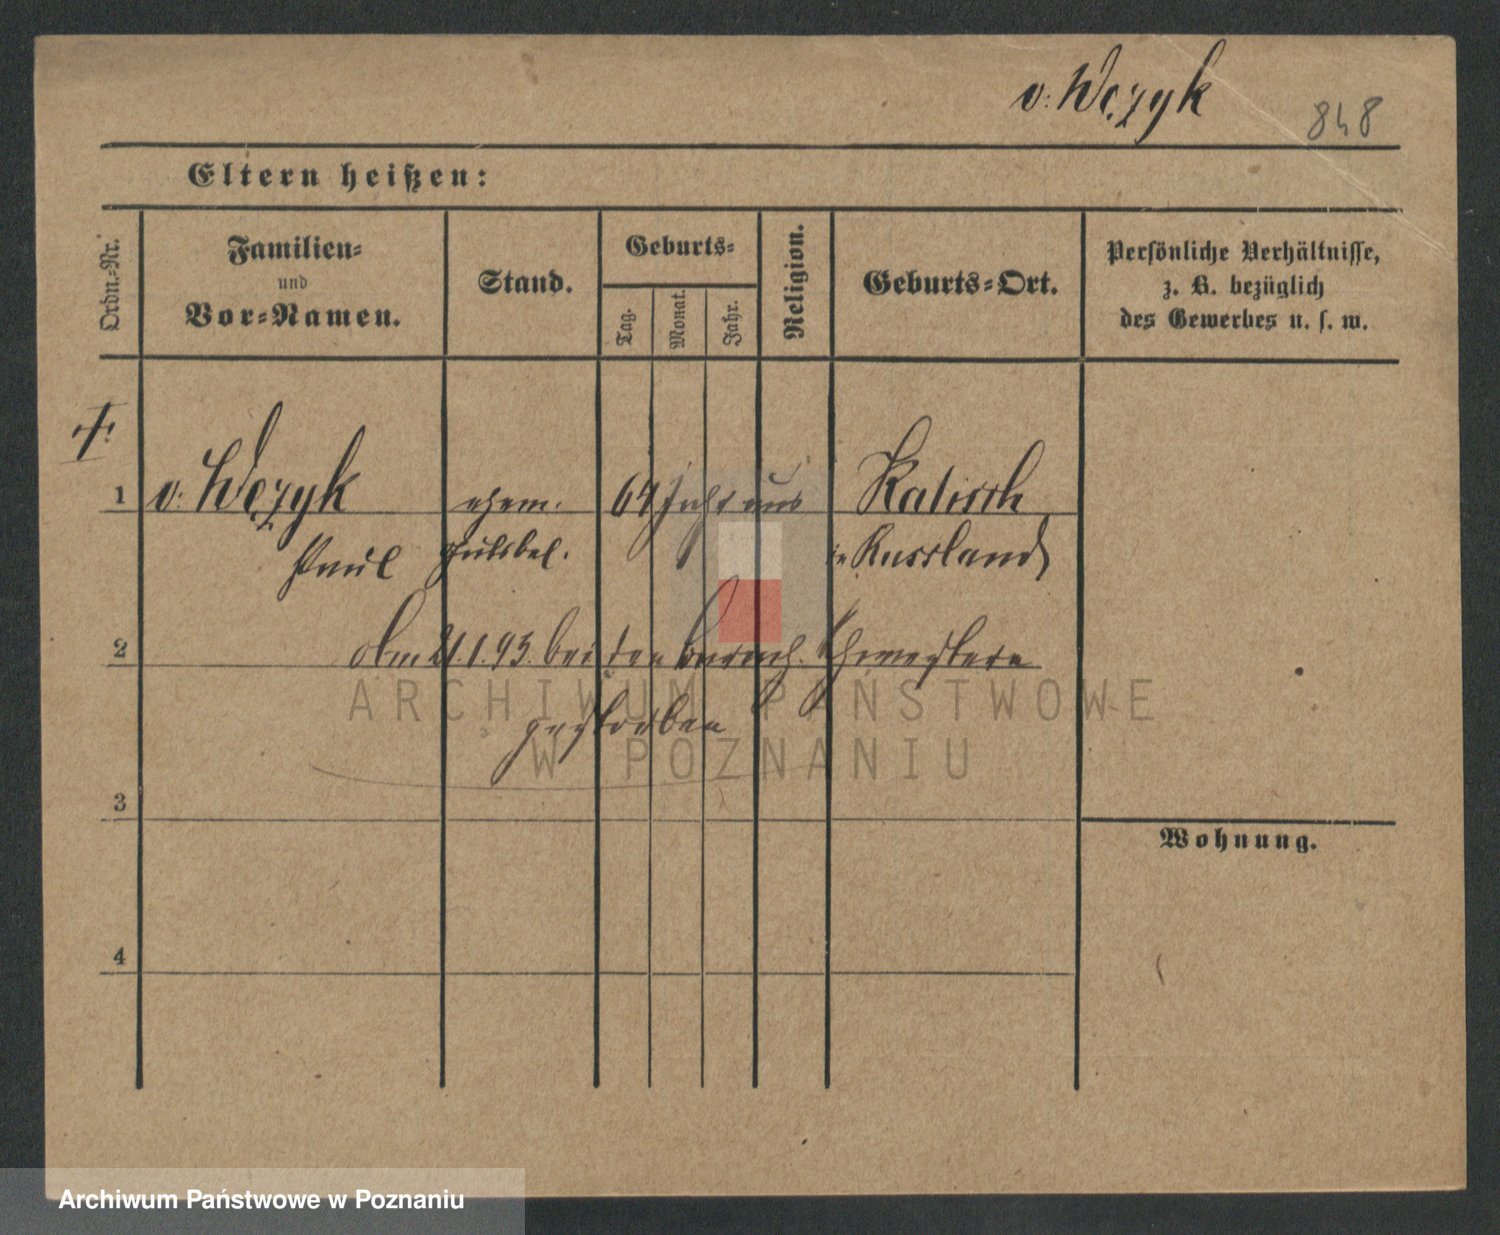 v. Wężyk 848
Eltern heißen:
Ordn.-Nr.
Familien-
und
Vor-Namen.
Stand.
Geburts-
Tag.
Monat.
Jahr.
Religion.
Geburts-Ort.
Persönliche Verhältnisse,
z. B. bezüglich
des Gewerbes u. s. w.
1 v. Wężyk ehem. 64 Jahr aus Kalisch
Paul Gutsbes. in Russland
2 Am 21.1.93. bei den barmh. Schwestern
gestorben
ARCHIWUM PAŃSTWOWE
W POZNANIU
3
Wohnung.
4
Archiwum Państwowe w Poznaniu